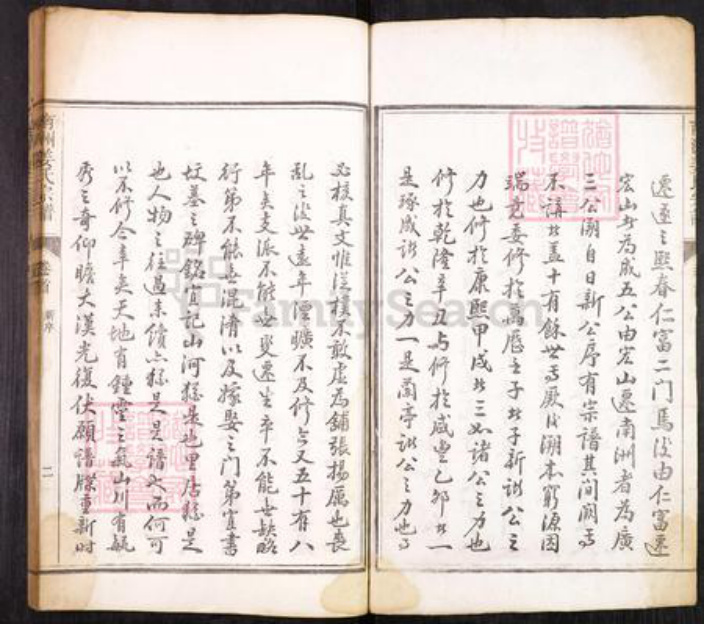 遷遂之熙春仁富二門馬後由仁富遷
宏山步為成五公由宏山遷南洲者為廣
三公溯自日新公序有宗譜其間闕焉
不講此蓋十有餘世焉厥後溯本窮源因
端竟委修於萬曆壬子此子新諸公之
力也修於康熙甲戌此三如諸公之力也
修於乾隆辛丑與修於咸豐乙卯此一
是琢成諸公之力一是蘭亭諸公之力也焉
必核真文惟從樸不敢虛為鋪張揚厲也喪
亂之後世遠年湮曠不及修今又五十有八
年矣支派不能無變遷生卒不能無缺略
行第不能無混淆以及嫁娶之門第宜書
墳墓之碑銘宜記山河猶是也里居猶是
也人物之往過來續亦猶是是譜又而何可
以不修今幸天地有鍾靈之氣山川有毓
秀之奇仰瞻大漢光復伏願譜牒重新時
南洲姜氏宗譜
卷首
新序
二
FamilySearch